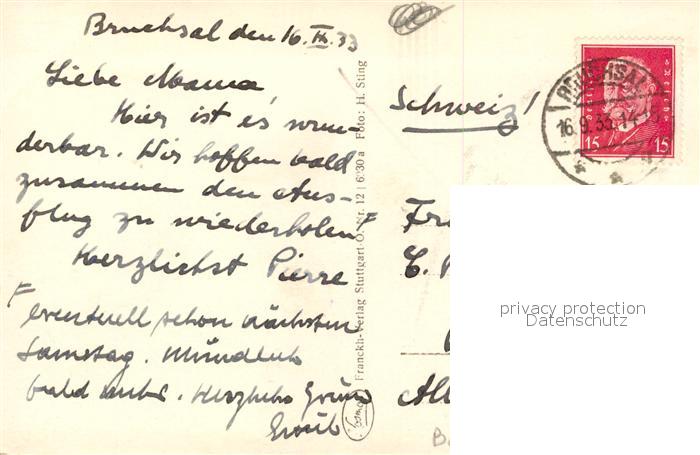 Bruchsal den 16. IX. 33
Liebe Mama,
Hier ist es wun-
derbar. Wir hoffen bald
zusammen den Aus-
flug zu wiederholen F
Herzlichst Pierre
F
eventuell schon nächsten
Samstag. Mündlich
bald mehr. Herzliche Grüsse
Franckh-Verlag Stuttgart-O, Nr. 12 | 6930 a Foto: H. Sting
Kosmos
Schweiz!
BRUCHSAL
16.9.33.14-15
Deutsches Reich
15 15
Fr
C.
All
B
privacy protection
Datenschutz